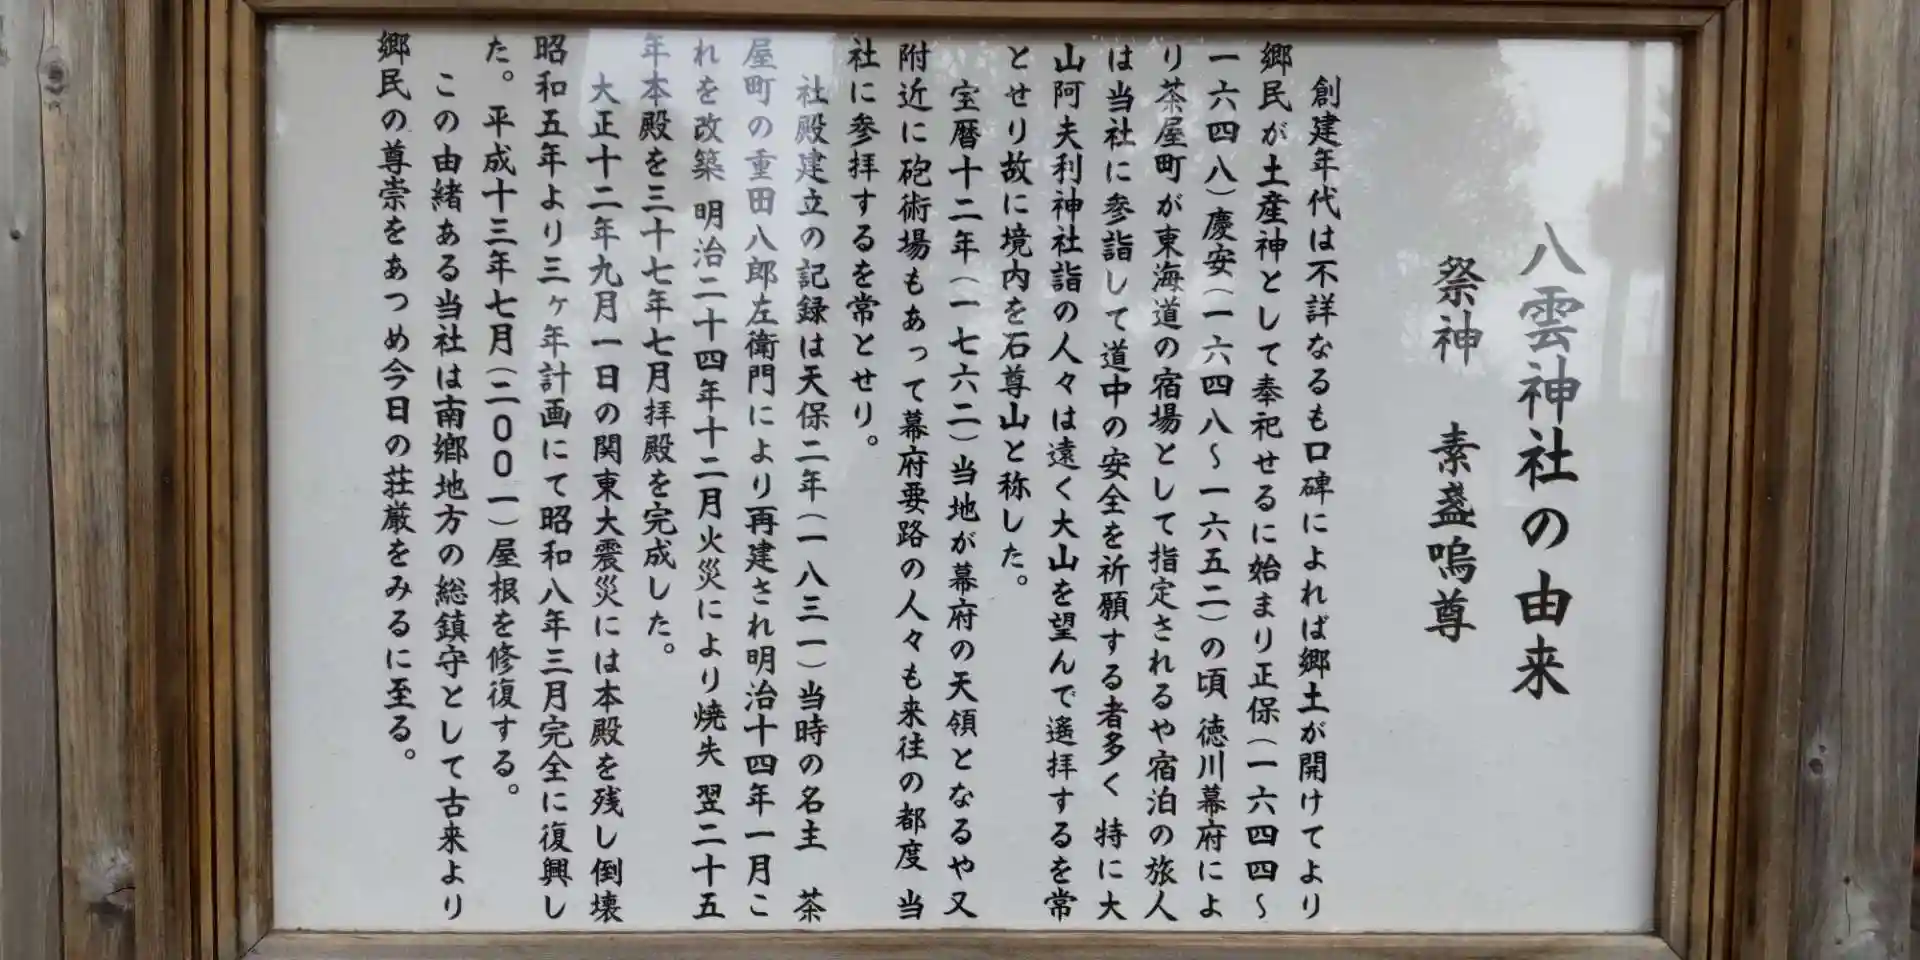 八雲神社の由来
祭神　素盞嗚尊
創建年代は不詳なるも口碑によれば郷土が開けてより
郷民が土産神として奉祀せるに始まり正保(一六四四～
一六四八)慶安(一六四八～一六五二)の頃 徳川幕府によ
り茶屋町が東海道の宿場として指定されるや宿泊の旅人
は当社に参詣して道中の安全を祈願する者多く 特に大
山阿夫利神社詣の人々は遠く大山を望んで遙拝するを常
とせり故に境内を石尊山と称した。
宝暦十二年(一七六二)当地が幕府の天領となるや又
附近に砲術場もあって幕府要路の人々も来往の都度 当
社に参拝するを常とせり。
社殿建立の記録は天保二年(一八三一)当時の名主　茶
屋町の重田八郎左衛門により再建され明治十四年一月こ
れを改築 明治二十四年十二月火災により焼失 翌二十五
年本殿を三十七年七月拝殿を完成した。
大正十二年九月一日の関東大震災には本殿を残し倒壊
昭和五年より三ヶ年計画にて昭和八年三月完全に復興し
た。平成十三年七月(二〇〇一)屋根を修復する。
この由緒ある当社は南郷地方の総鎮守として古来より
郷民の尊崇をあつめ今日の荘厳をみるに至る。